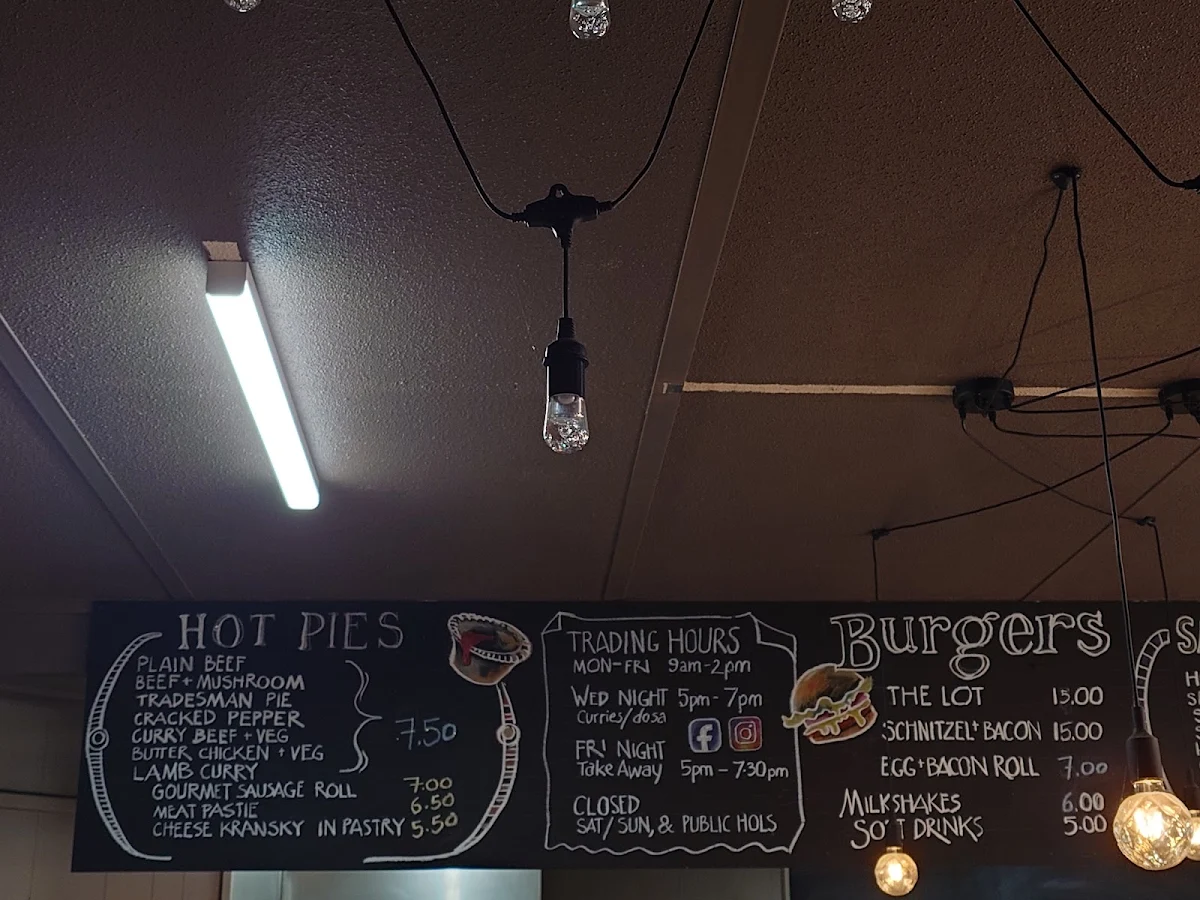 HOT PIES
PLAIN BEEF
BEEF + MUSHROOM
TRADESMAN PIE
CRACKED PEPPER
CURRY BEEF + VEG
BUTTER CHICKEN + VEG
LAMB CURRY
7.50
GOURMET SAUSAGE ROLL 7.00
MEAT PASTIE 6.50
CHEESE KRANSKY IN PASTRY 5.50
TRADING HOURS
MON-FRI 9am-2pm
WED NIGHT 5pm-7pm
Curries/dosa
FRI NIGHT
Take Away 5pm-7:30pm
CLOSED
SAT/SUN, & PUBLIC HOLS
Burgers
THE LOT 15.00
SCHNITZEL+BACON 15.00
EGG+BACON ROLL 7.00
MILKSHAKES 6.00
SOFT DRINKS 5.00